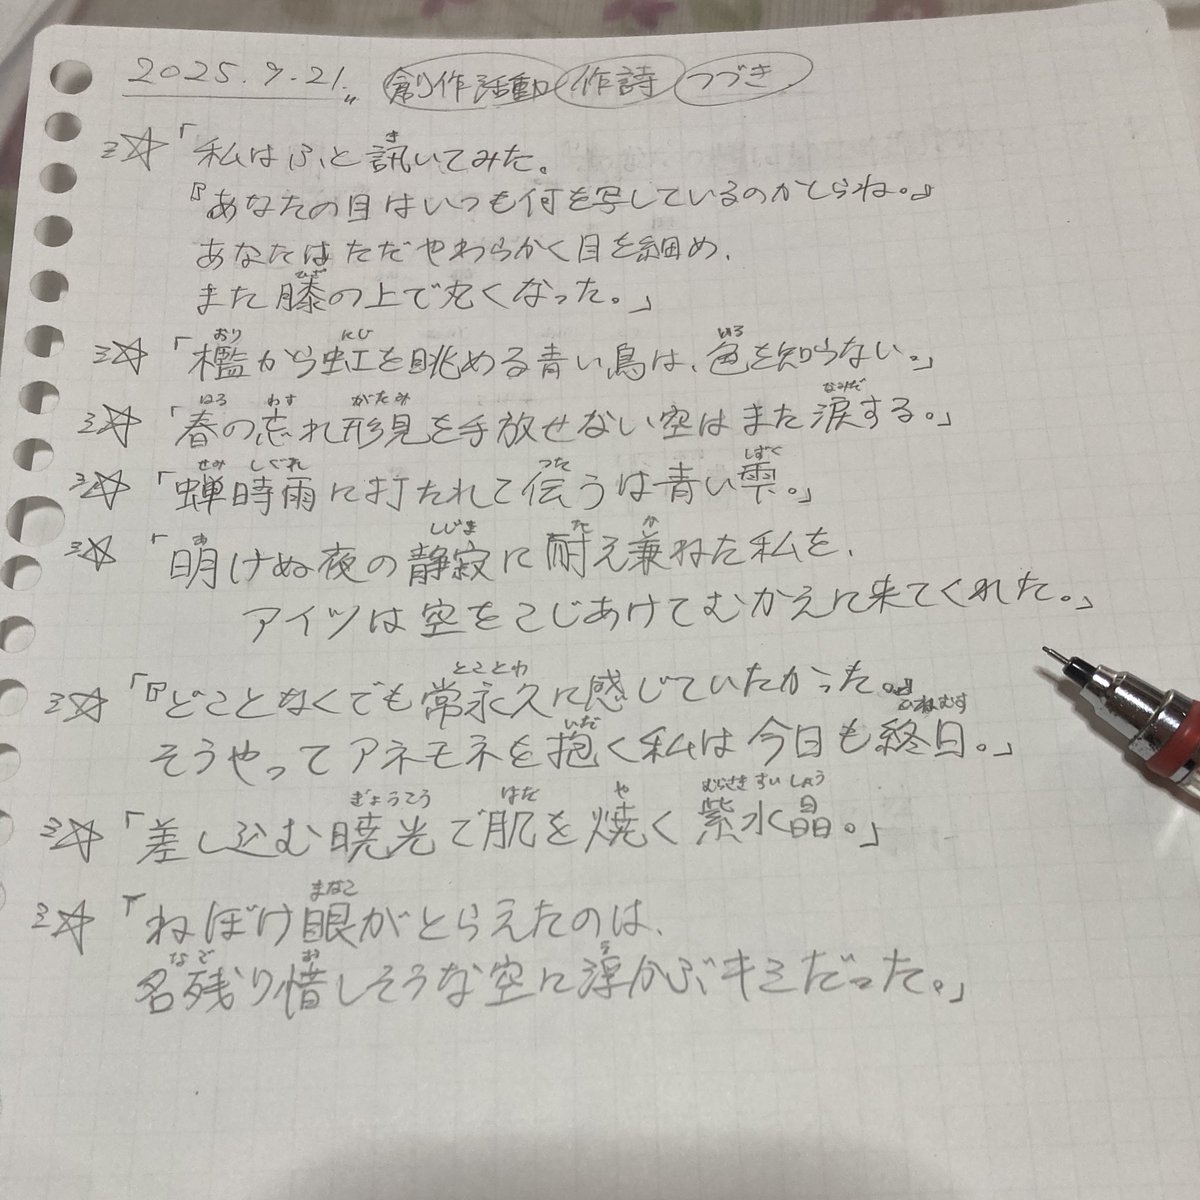 2025.9.21. 創作活動 作詩 つづき
☆「私はふと訊いてみた。
『あなたの目はいつも何を写しているのかしらね。』
あなたはただやわらかく目を細め、
また膝の上で丸くなった。」
☆「檻から虹を眺める青い鳥は、色を知らない。」
☆「春の忘れ形見を手放せない空はまた涙する。」
☆「蝉時雨に打たれて伝うは青い雫。」
☆「明けぬ夜の静寂に耐え兼ねた私を、
アイツは空をこじあけてむかえに来てくれた。」
☆「『どことなくでも常永久に感じていたかった。』
そうやってアネモネを抱く私は今日も終日。」
☆「差し込む暁光で肌を焼く紫水晶。」
☆「ねぼけ眼がとらえたのは、
名残り惜しそうな空に浮かぶキミだった。」